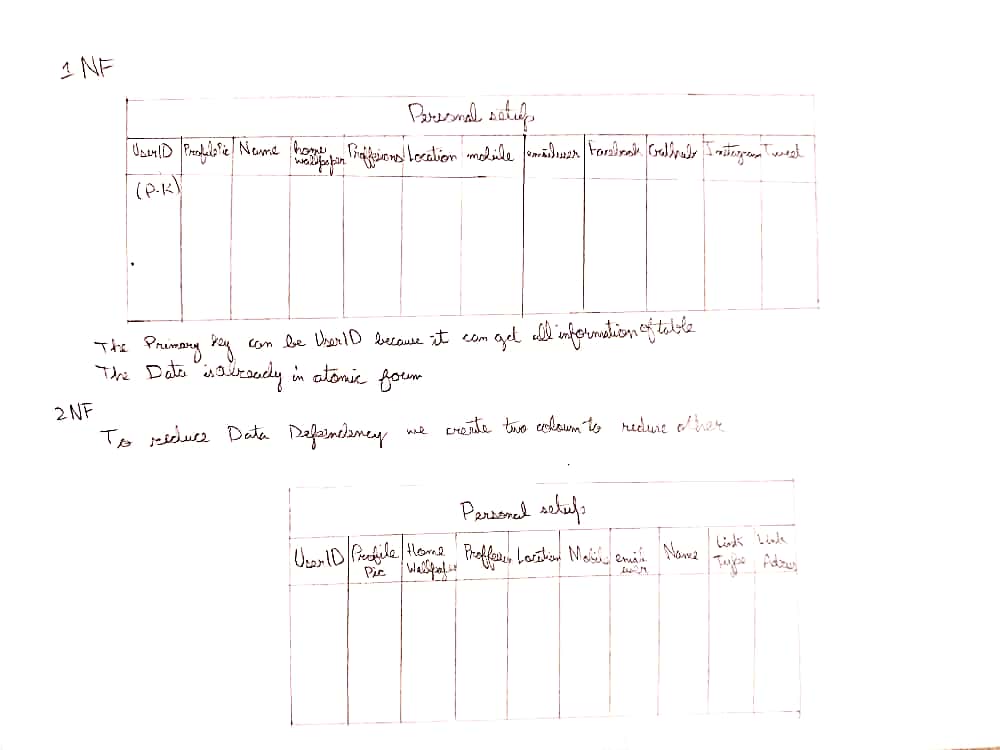 1 NF
Personal setup
UserID ProfilePic Name home wallpaper Proffesions Location mobile emailuser Facebook Github Instagram Tweet
(P.K)
The Primary key can be UserID because it can get all information of table
The Data is already in atomic form
2 NF
To reduce Data Dependency we create two coloum to reduce other
Personal setup
UserID Profile Pic Home Wallpaper Location Mobile email user Name Link Type Link Adres